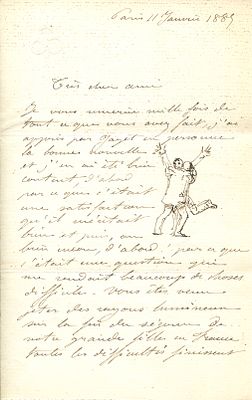 Paris 11 Janvier 188
Très cher ami
Je vous remercie mille fois de
tout ce que vous avez fait, j'ai
appris par en personne
la bonne nouvelle
et j'en ai été bien
content d'abord
par ce que c'était
une satisfaction
qu'il méritait
bien et puis, ou
bien encore, d'abord! par ce que
c'était une question qui
me rendait beaucoup de choses
difficiles. Vous êtes venu
jeter des rayons lumineux
sur la fin du séjour de
notre grande fille en France
toutes les difficultés finissent